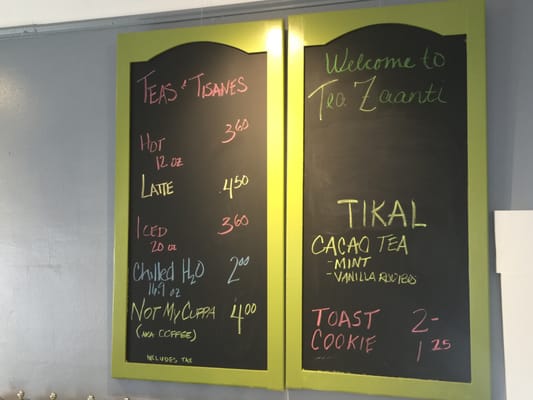 TEAS & TISANES
HOT 3.60
12 OZ
LATTE 4.50
ICED 3.60
20 OZ
Chilled H2O 2.00
16.9 OZ
NOT MY CUPPA 4.00
(AKA COFFEE)
INCLUDES TAX
Welcome to
Tea Zaanti
TIKAL
CACAO TEA
-MINT
-VANILLA ROOIBOS
TOAST 2-
COOKIE 1.25